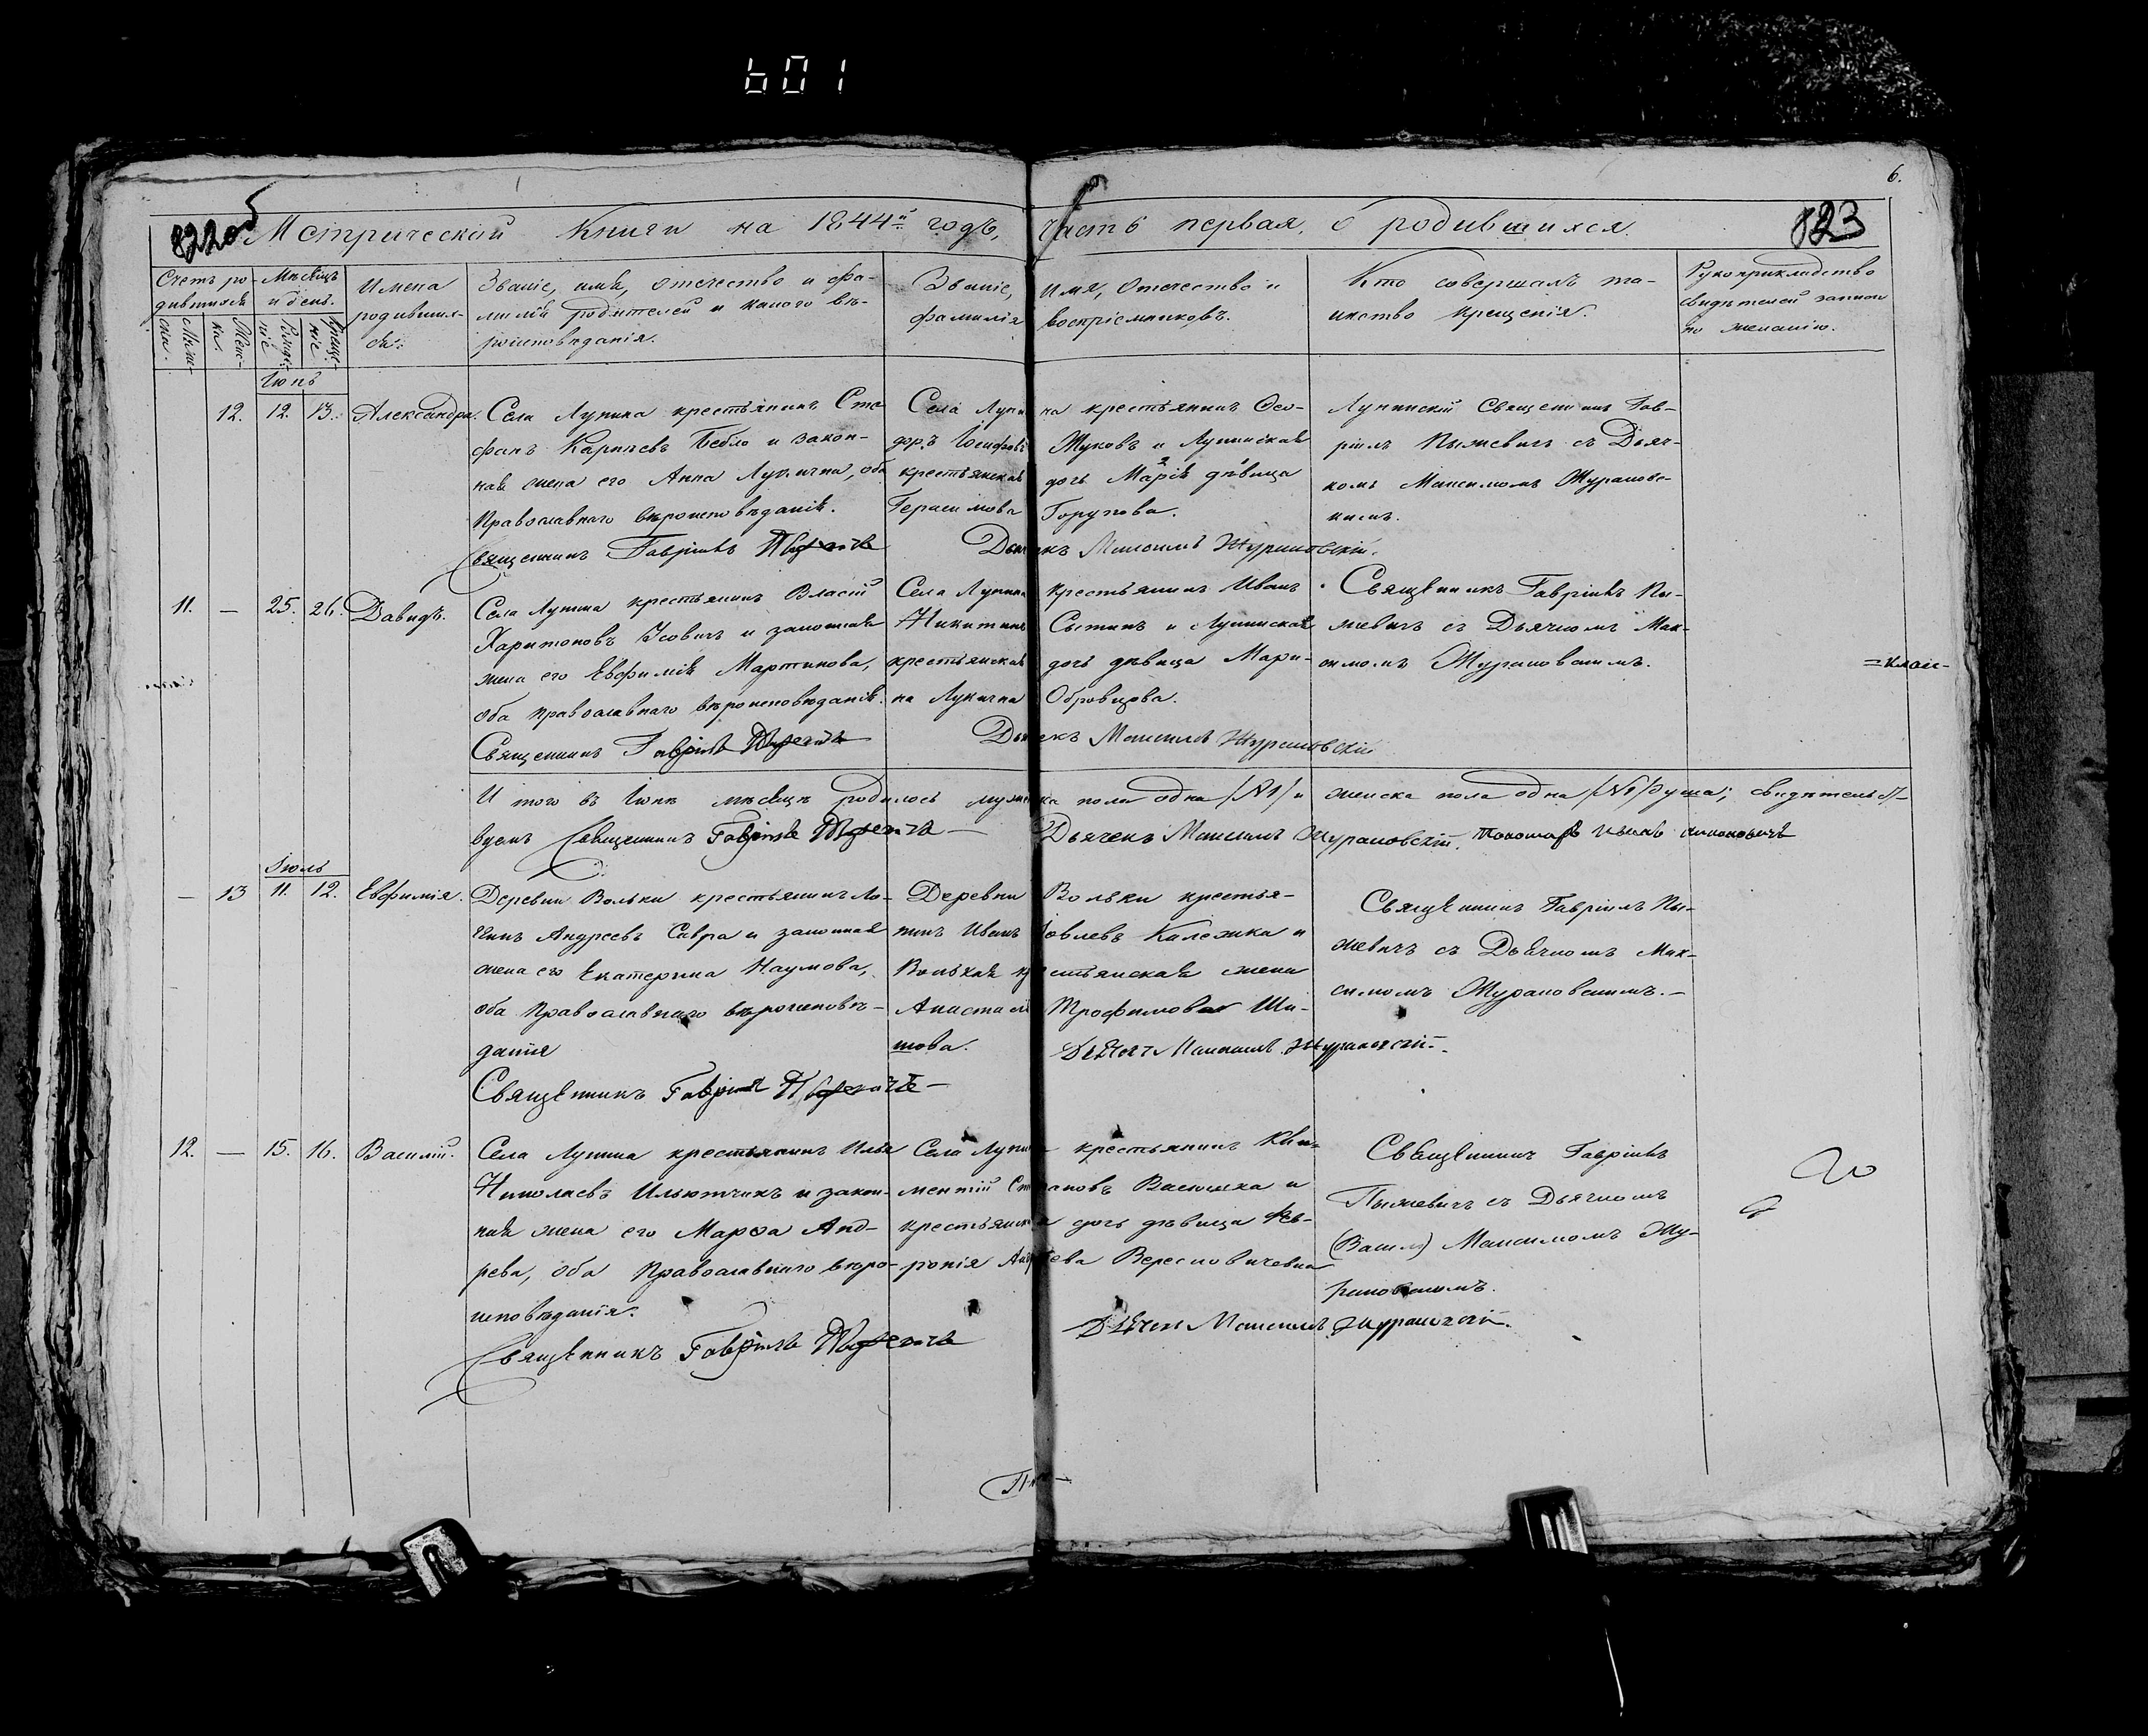 601
6.
822 об
823
Метрической Книги на 1844й годъ, Часть первая, о родившихся.
Счетъ ро-
дившихся
Муже-
ска.
Жен-
ка.
Мѣсяцъ
и день.
Рожде-
ніе
Креще-
ніе
Имена
родивших-
ся.
Званіе, имя, отечество и фа-
милія родителей и какого вѣ-
роисповѣданія.
Званіе, Имя, Отечество и
фамилія воспріемниковъ.
Кто совершалъ та-
инство крещенія.
Рукоприкладство
свидѣтелей записи
по желанію.
Іюнь
12. 12. 13. Александра.
Села Лунина крестьянинъ Сте
фанъ Карпѣевъ Бебло и закон-
ная жена его Анна Лукична, оба
Православнаго вѣроисповѣданія.
Священникъ Гавріилъ Пыжевичъ
Села Лунина крестьянинъ Өео-
доръ Іосифовъ Жуковъ и Лунинская
крестьянская дочь Марія дѣвица
Герасимова Горупова.
Дьячекъ Максимъ Журановскій.
Лунинскій Священникъ Гав-
ріилъ Пыжевичъ съ Дьяч-
комъ Максимомъ Журановс-
кимъ.
11. — 25. 26. Давидъ.
Села Лунина крестьянинъ Власій
Харитоновъ Усовичъ и законная
жена его Евфимія Мартинова,
оба православнаго вѣроисповѣданія.
Священникъ Гавріилъ Пыжевичъ
Села Лунина крестьянинъ Иванъ
Никитинъ Сытинъ и Лунинская
крестьянская дочь дѣвица Мари-
на Лукична Обровцова.
Дьячекъ Максимъ Журановскій
Священникъ Гавріилъ Пы-
жевичъ съ Дьячкомъ Мак-
симомъ Журановскимъ.
И того въ Іюнѣ мѣсяцѣ родилось мужеска пола одна /№1/ и женска пола одна /№1/ душа; свидѣтельст-
вуемъ Священникъ Гавріилъ Пыжевичъ — Дьячекъ Максимъ Журановскій.
Іюль
— 13 11. 12. Евфимія.
Деревни Вольки крестьянинъ Ло-
гинъ Андреевъ Савра и законная
жена его Екатерина Наумова,
оба Православнаго вѣроисповѣ-
данія
Священникъ Гавріилъ Пыжевичъ —
Деревни Вольки крестья-
нинъ Иванъ Іовлевъ Калежка и
Вольская крестьянская жена
Анастасія Трофимова Ши-
това.
Дьячекъ Максимъ Журановскій.
Священникъ Гавріилъ Пы-
жевичъ съ Дьячкомъ Мак-
симомъ Журановскимъ.—
12. — 15. 16. Василій.
Села Лунина крестьянинъ Илья
Николаевъ Ильютчикъ и закон-
ная жена его Марѳа Анд-
реева, оба Православнаго вѣро-
исповѣданія.
Священникъ Гавріилъ Пыжевичъ
Села Лунина крестьянинъ Кли-
ментій Степановъ Васюшка и
крестьянская дочь дѣвица Фев-
ронія Андреева Вересовичевна
Дьячекъ Максимъ Журановскій.
Священникъ Гавріилъ
Пыжевичъ съ Дьячкомъ
(Васил) Максимомъ Жу-
рановскимъ.